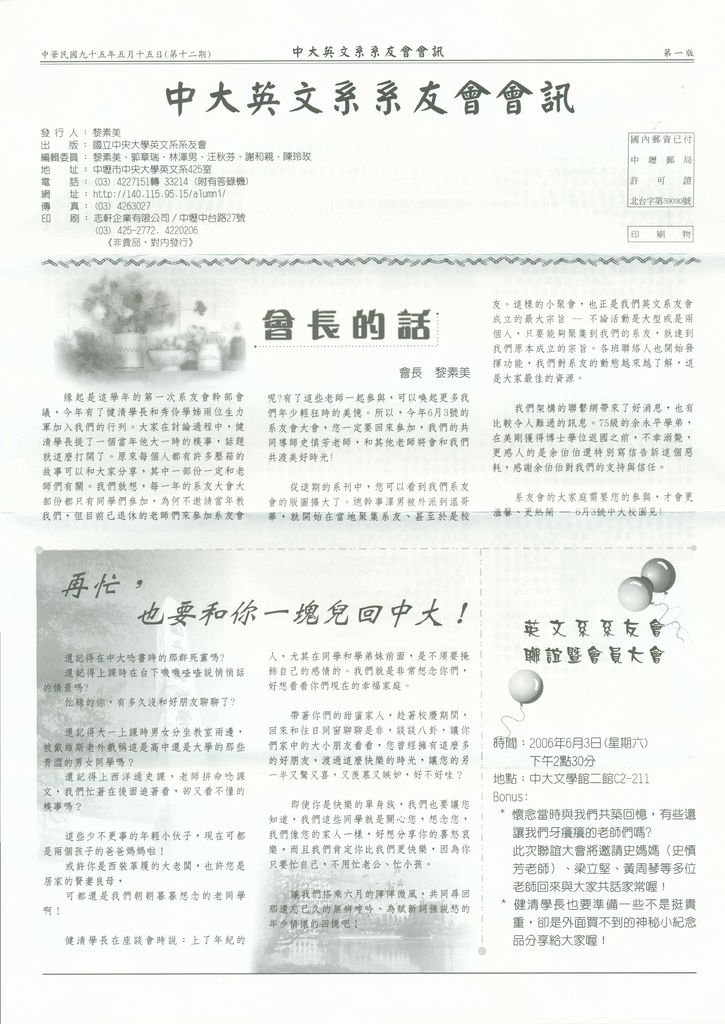 中華民國九十五年五月十五日(第十二期)
中大英文系系友會會訊
第一版
中大英文系系友會會訊
發行人：黎素美
出　版：國立中央大學英文系系友會
編輯委員：黎素美、郭章瑞、林澤男、汪秋芬、謝和親、陳玲玫
地　址：中壢市中央大學英文系425室
電　話：(03) 4227151轉 33214 (附有答錄機)
網　址：http://140.115.95.15/alumni/
傳　真：(03) 4263027
印　刷：志軒企業有限公司／中壢中台路27號
(03) 425-2772．4220206
《非賣品，對內發行》
國內郵資已付
中壢郵局
許可證
北台字第59030號
印刷物
會長的話
會長　黎素美
緣起是這學年的第一次系友會幹部會
議，今年有了健清學長和秀伶學姊兩位生力
軍加入我們的行列。大家在討論過程中，健
清學長提了一個當年他大一時的糗事，話題
就這麼打開了。原來每個人都有許多壓箱的
故事可以和大家分享，其中一部份一定和老
師們有關。我們就想，每一年的系友大會大
部份都只有同學們參加，為何不邀請當年教
我們，但目前已退休的老師們來參加系友會
呢?有了這些老師一起參與，可以喚起更多我
們年少輕狂時的美憶。所以，今年6月3號的
系友會大會，您一定要回來參加，我們的共
同導師史慎芳老師，和其他老師將會和我們
共渡美好時光!
從這期的系刊中，您可以看到我們系友
會的版圖擴大了。總幹事澤男被外派到溫哥
華，就開始在當地聚集系友、甚至於是校
友。這樣的小聚會，也正是我們英文系友會
成立的最大宗旨 — 不論活動是大型或是兩
個人，只要能夠聚集到我們的系友，就達到
我們原本成立的宗旨。各班聯絡人也開始發
揮功能，我們對系友的動態越來越了解，這
是大家最佳的資源。
我們架構的聯繫網帶來了好消息，也有
比較令人難過的訊息。75級的余永平學弟，
在美剛獲得博士學位返國之前，不幸溺斃，
更感人的是余伯伯還特別寫信告訴這個噩
耗，感謝余伯伯對我們的支持與信任。
系友會的大家庭需要您的參與，才會更
溫馨、更熱鬧 — 6月3號中大校園見!
再忙，
也要和你一塊兒回中大！
還記得在中大唸書時的那群死黨嗎?
還記得上課時在台下嘰嘰喳喳說悄悄話
的情景嗎?
忙碌的你，有多久沒和好朋友聊聊了?
還記得大一上課時男女分坐教室兩邊，
被戴維斯老外戲稱這是高中還是大學的那些
青澀的男女同學嗎?
還記得上西洋通史課，老師拼命唸課
文，我們忙著在後面追著看，卻又看不懂的
糗事嗎？
這些少不更事的年輕小伙子，現在可都
是兩個孩子的爸爸媽媽啦！
或許你是西裝革履的大老闆，也許您是
居家的賢妻良母，
可都還是我們朝朝暮暮想念的老同學
啊！
健清學長在座談會時說：上了年紀的
人，尤其在同學和學弟妹前面，是不須要掩
飾自己的感情的。我們就是非常想念你們，
好想看看你們現在的幸福家庭。
帶著你們的甜蜜家人，趁著校慶期間，
回來和往日同窗聊聊是非，談談八卦，讓你
們家中的大小朋友看看，您曾經擁有這麼多
的好朋友，渡過這麼快樂的時光，讓您的另
一半又驚又喜，又羨慕又嫉妒，好不好哇？
即使你是快樂的單身族，我們也要讓您
知道，我們這些同學就是關心您，想念您，
我們像您的家人一樣，好想分享你的喜怒哀
樂，而且我們肯定你比我們更快樂，因為你
只要忙自己，不用忙老公、忙小孩。
讓我們搭乘六月的陣陣微風，共同尋回
那遺忘已久的無病呻吟、為賦新詞強說愁的
年少情懷的回憶吧！
英文系系友會
聯誼暨會員大會
時間：2006年6月3日(星期六)
下午2點30分
地點：中大文學館二館C2-211
Bonus：
* 懷念當時與我們共築回憶，有些還
讓我們牙癢癢的老師們嗎?
此次聯誼大會將邀請史媽媽（史慎
芳老師）、梁立堅、黃周琴等多位
老師回來與大家共話家常喔！
* 健清學長也要準備一些不是挺貴
重，卻是外面買不到的神秘小紀念
品分享給大家喔！